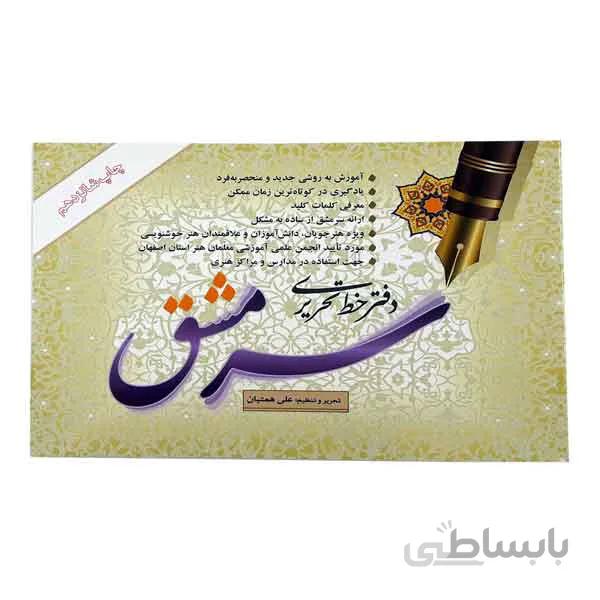 چاپ شانزدهم
آموزش به روشی جدید و منحصربه‌فرد
یادگیری در کوتاه‌ترین زمان ممکن
معرفی کلمات کلید
ارائه سرمشق از ساده به مشکل
ویژه هنرجویان، دانش‌آموزان و علاقمندان هنر خوشنویسی
مورد تأیید انجمن علمی آموزشی معلمان هنر استان اصفهان
جهت استفاده در مدارس و مراکز هنری
دفتر خط تحریری
سرمشق
تحریر و تنظیم: علی همتیان
بابساطی